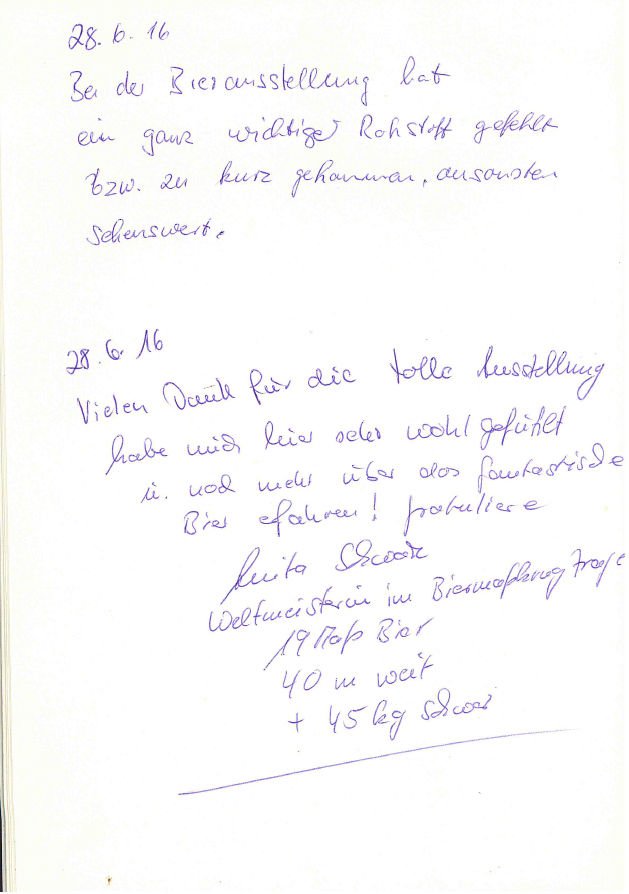 28.6.16
Bei der Bierausstellung hat
ein ganz wichtiger Rohstoff gefehlt
bzw. zu kurz gekommen, ansonsten
sehenswert.
28.6.16
Vielen Dank für die tolle Ausstellung
habe mich hier sehr wohl gefühlt
u. noch mehr über das fantastische
Bier efahren! gratuliere
Anita Schwarz
Weltmeisterin im Biermaßkrug tragen
19 Maß Bier
40 m weit
+ 45 kg schwer